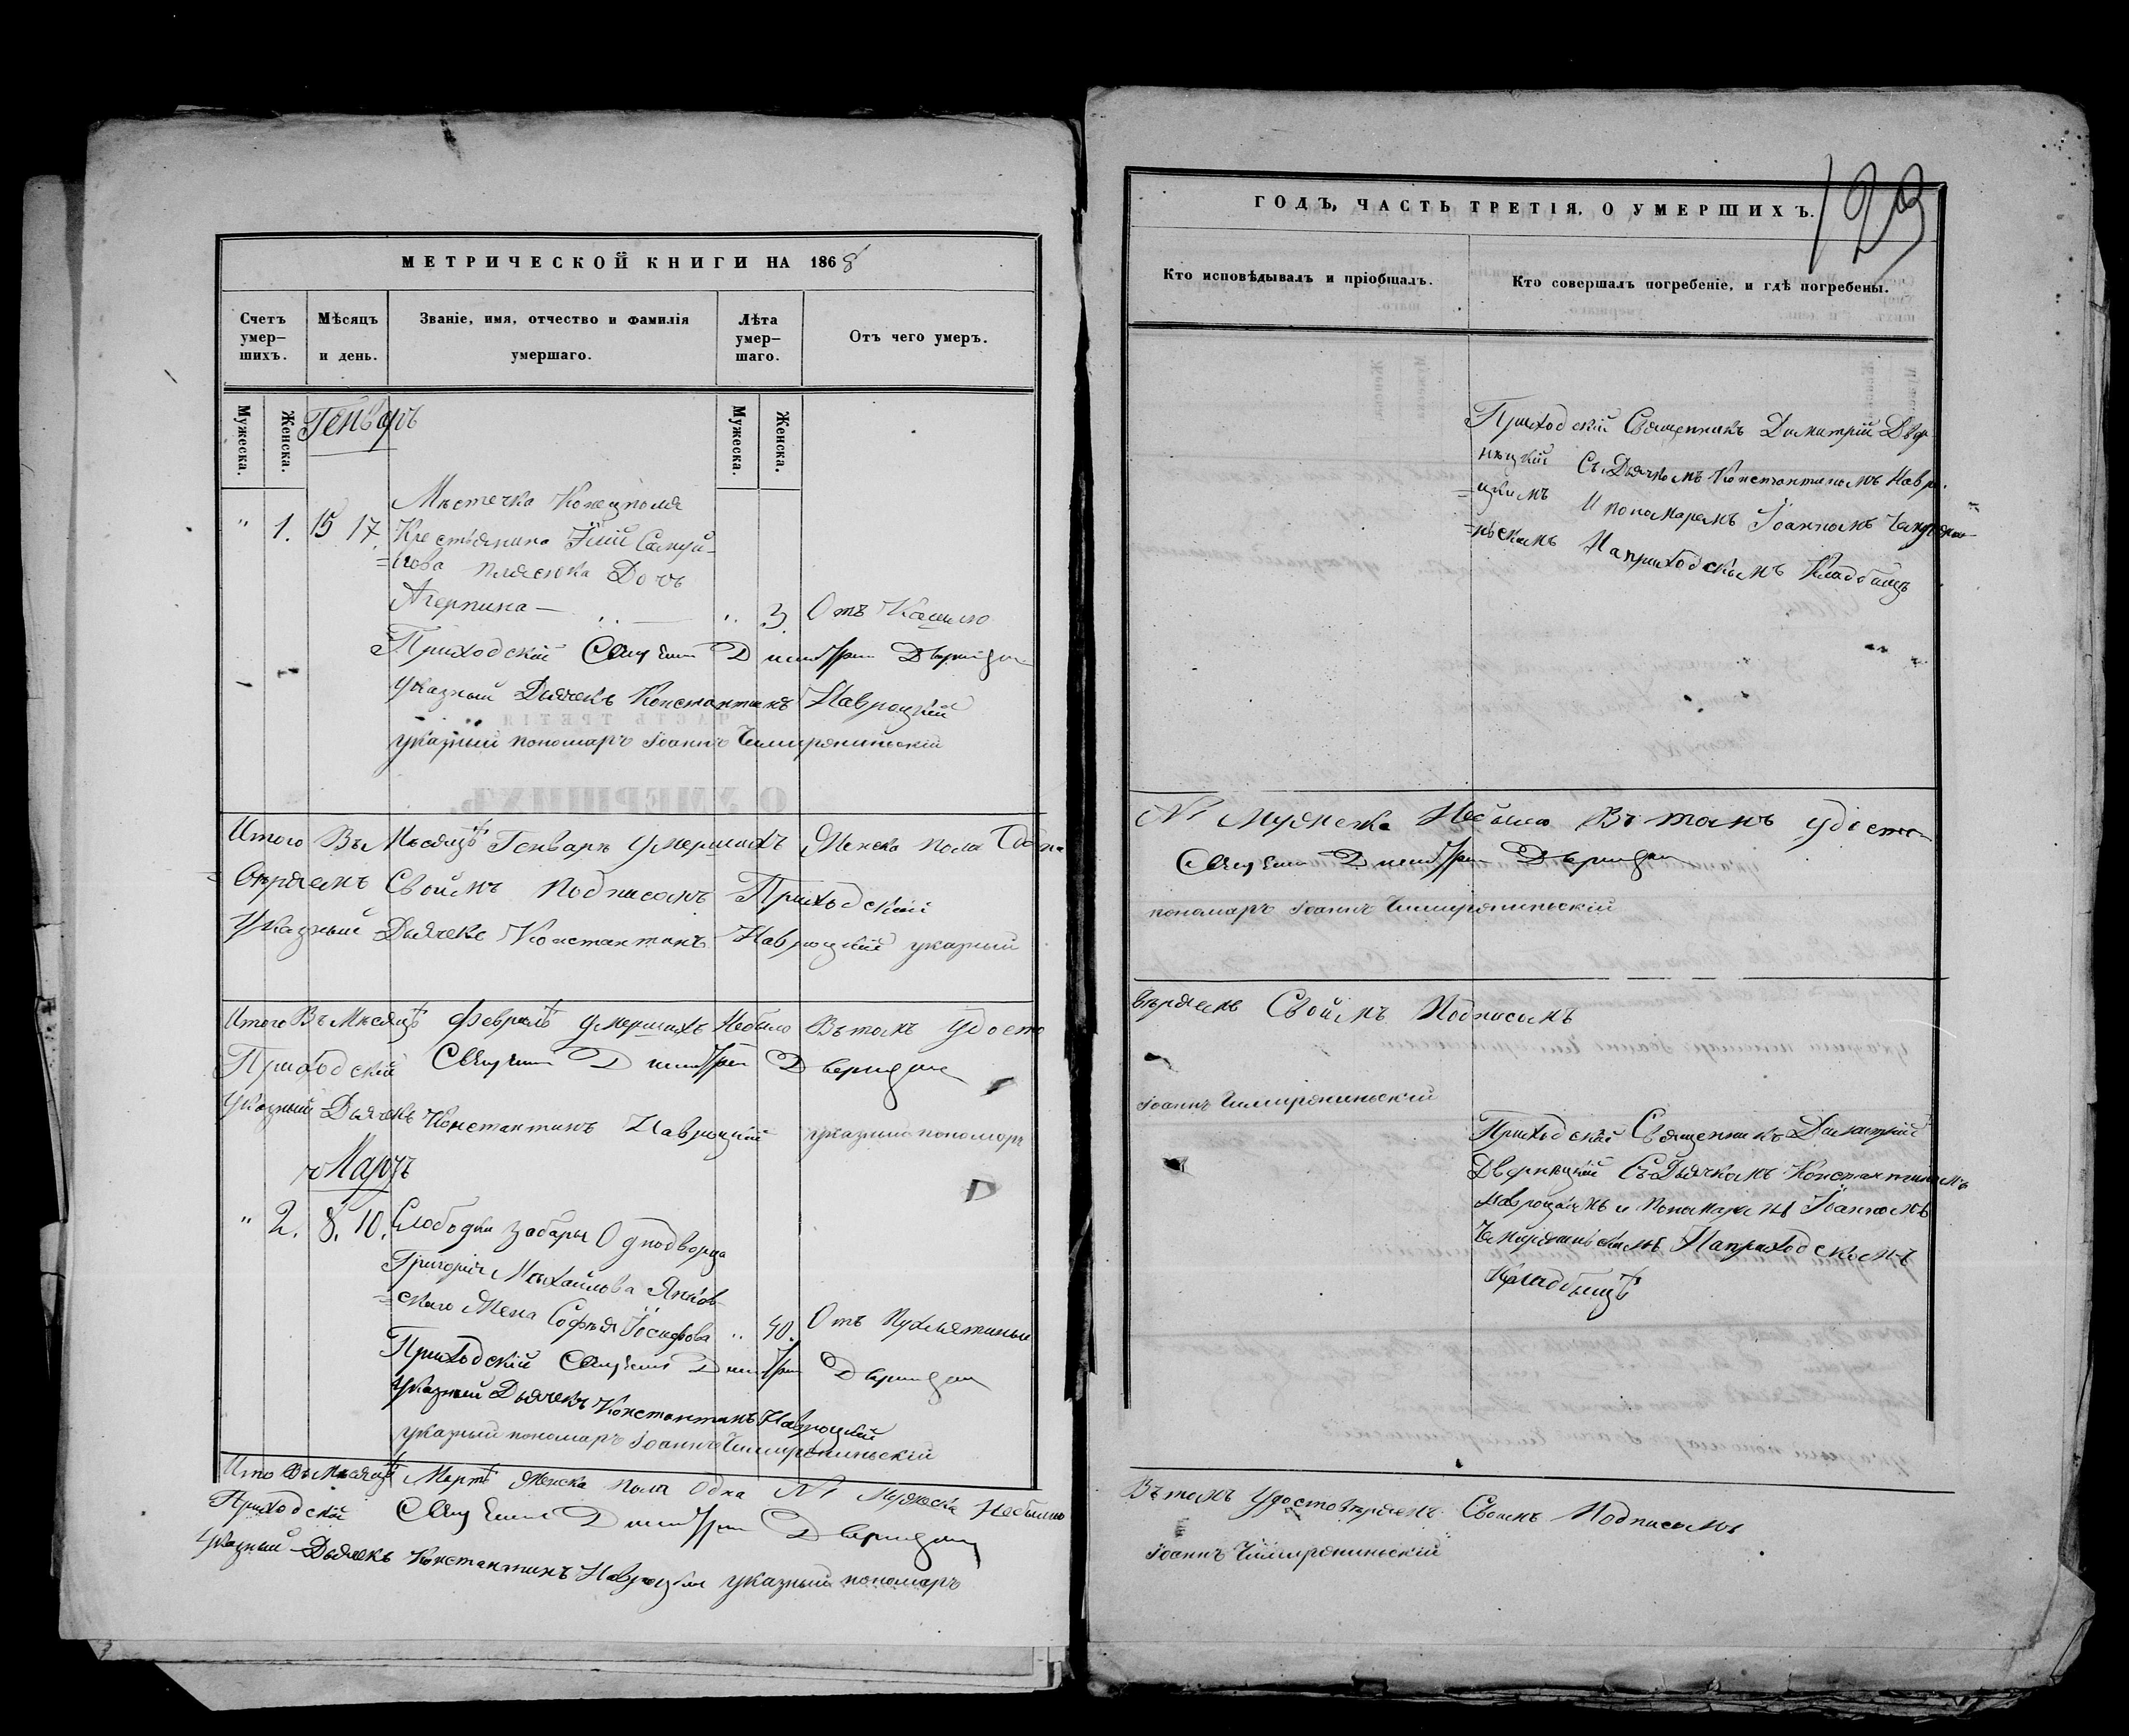 МЕТРИЧЕСКОЙ КНИГИ НА 1868
Счетъ умер-шихъ.
Мѣсяцъ и день.
Званіе, имя, отчество и фамилія умершаго.
Лѣта умер-шаго.
Отъ чего умеръ.
Мужеска.
Женска.
Мужеска.
Женска.
Генварь
Мѣстечка Конецполя
" 1. 15 17. Крестьянина
Дочь
" 3. Отъ Кашлю
Приходскій Священ Димитрій
Указный Дьячекъ Константинъ Навроцкій
указный пономарь Іоаннъ
Итого Въ Мѣсяцѣ Генварѣ Умершихъ Женска пола Одна
Своймъ Подписомъ Приходскій
Указный Дьячекъ Константинъ Навроцкій указный
Итого Въ Мѣсяцѣ Февралѣ Умершихъ Небыло Въ томъ Удосто
Приходскій Священ Димитрій
Указный Дьячекъ Константинъ Навроцкій указный пономарь
Мартъ
" 2. 8. 10. Слободки Забары Однодворца
Григорія Михайлова Янков-
=скаго Жена Софія Іосифова " 40. Отъ Пухлятины
Приходскій Священ Димитрій
Указный Дьячекъ Константинъ Навроцкій
указный пономарь Іоаннъ
Итого Въ Мѣсяцѣ Мартѣ Женска пола Одна № 1 Мужеска Небыло
Приходскій Священ Димитрій
Указный Дьячекъ Константинъ Навроцкій указный пономарь
ГОДЪ, ЧАСТЬ ТРЕТІЯ, О УМЕРШИХЪ.
123
Кто исповѣдывалъ и пріобщалъ.
Кто совершалъ погребеніе, и гдѣ погребены.
Приходскій Священникъ Димитрій Двер
ницкій Съ Дьячкомъ Константиномъ Навро
=цкимъ И пономаремъ Іоанномъ
На приходскомъ Кладбищѣ
№ 1 Мужеска Небыло Въ томъ Удосто
Священ Димитрій
пономарь Іоаннъ
вѣряемъ Своймъ Подписомъ
Іоаннъ
Приходскій Священникъ Димитрій
Дверницкій Съ Дьячкомъ Константиномъ
Навроцкимъ и Пономаремъ Іоанномъ
На приходскомъ
Кладбищѣ
Въ томъ Удостовѣряемъ Свомъ Подписомъ
Іоаннъ